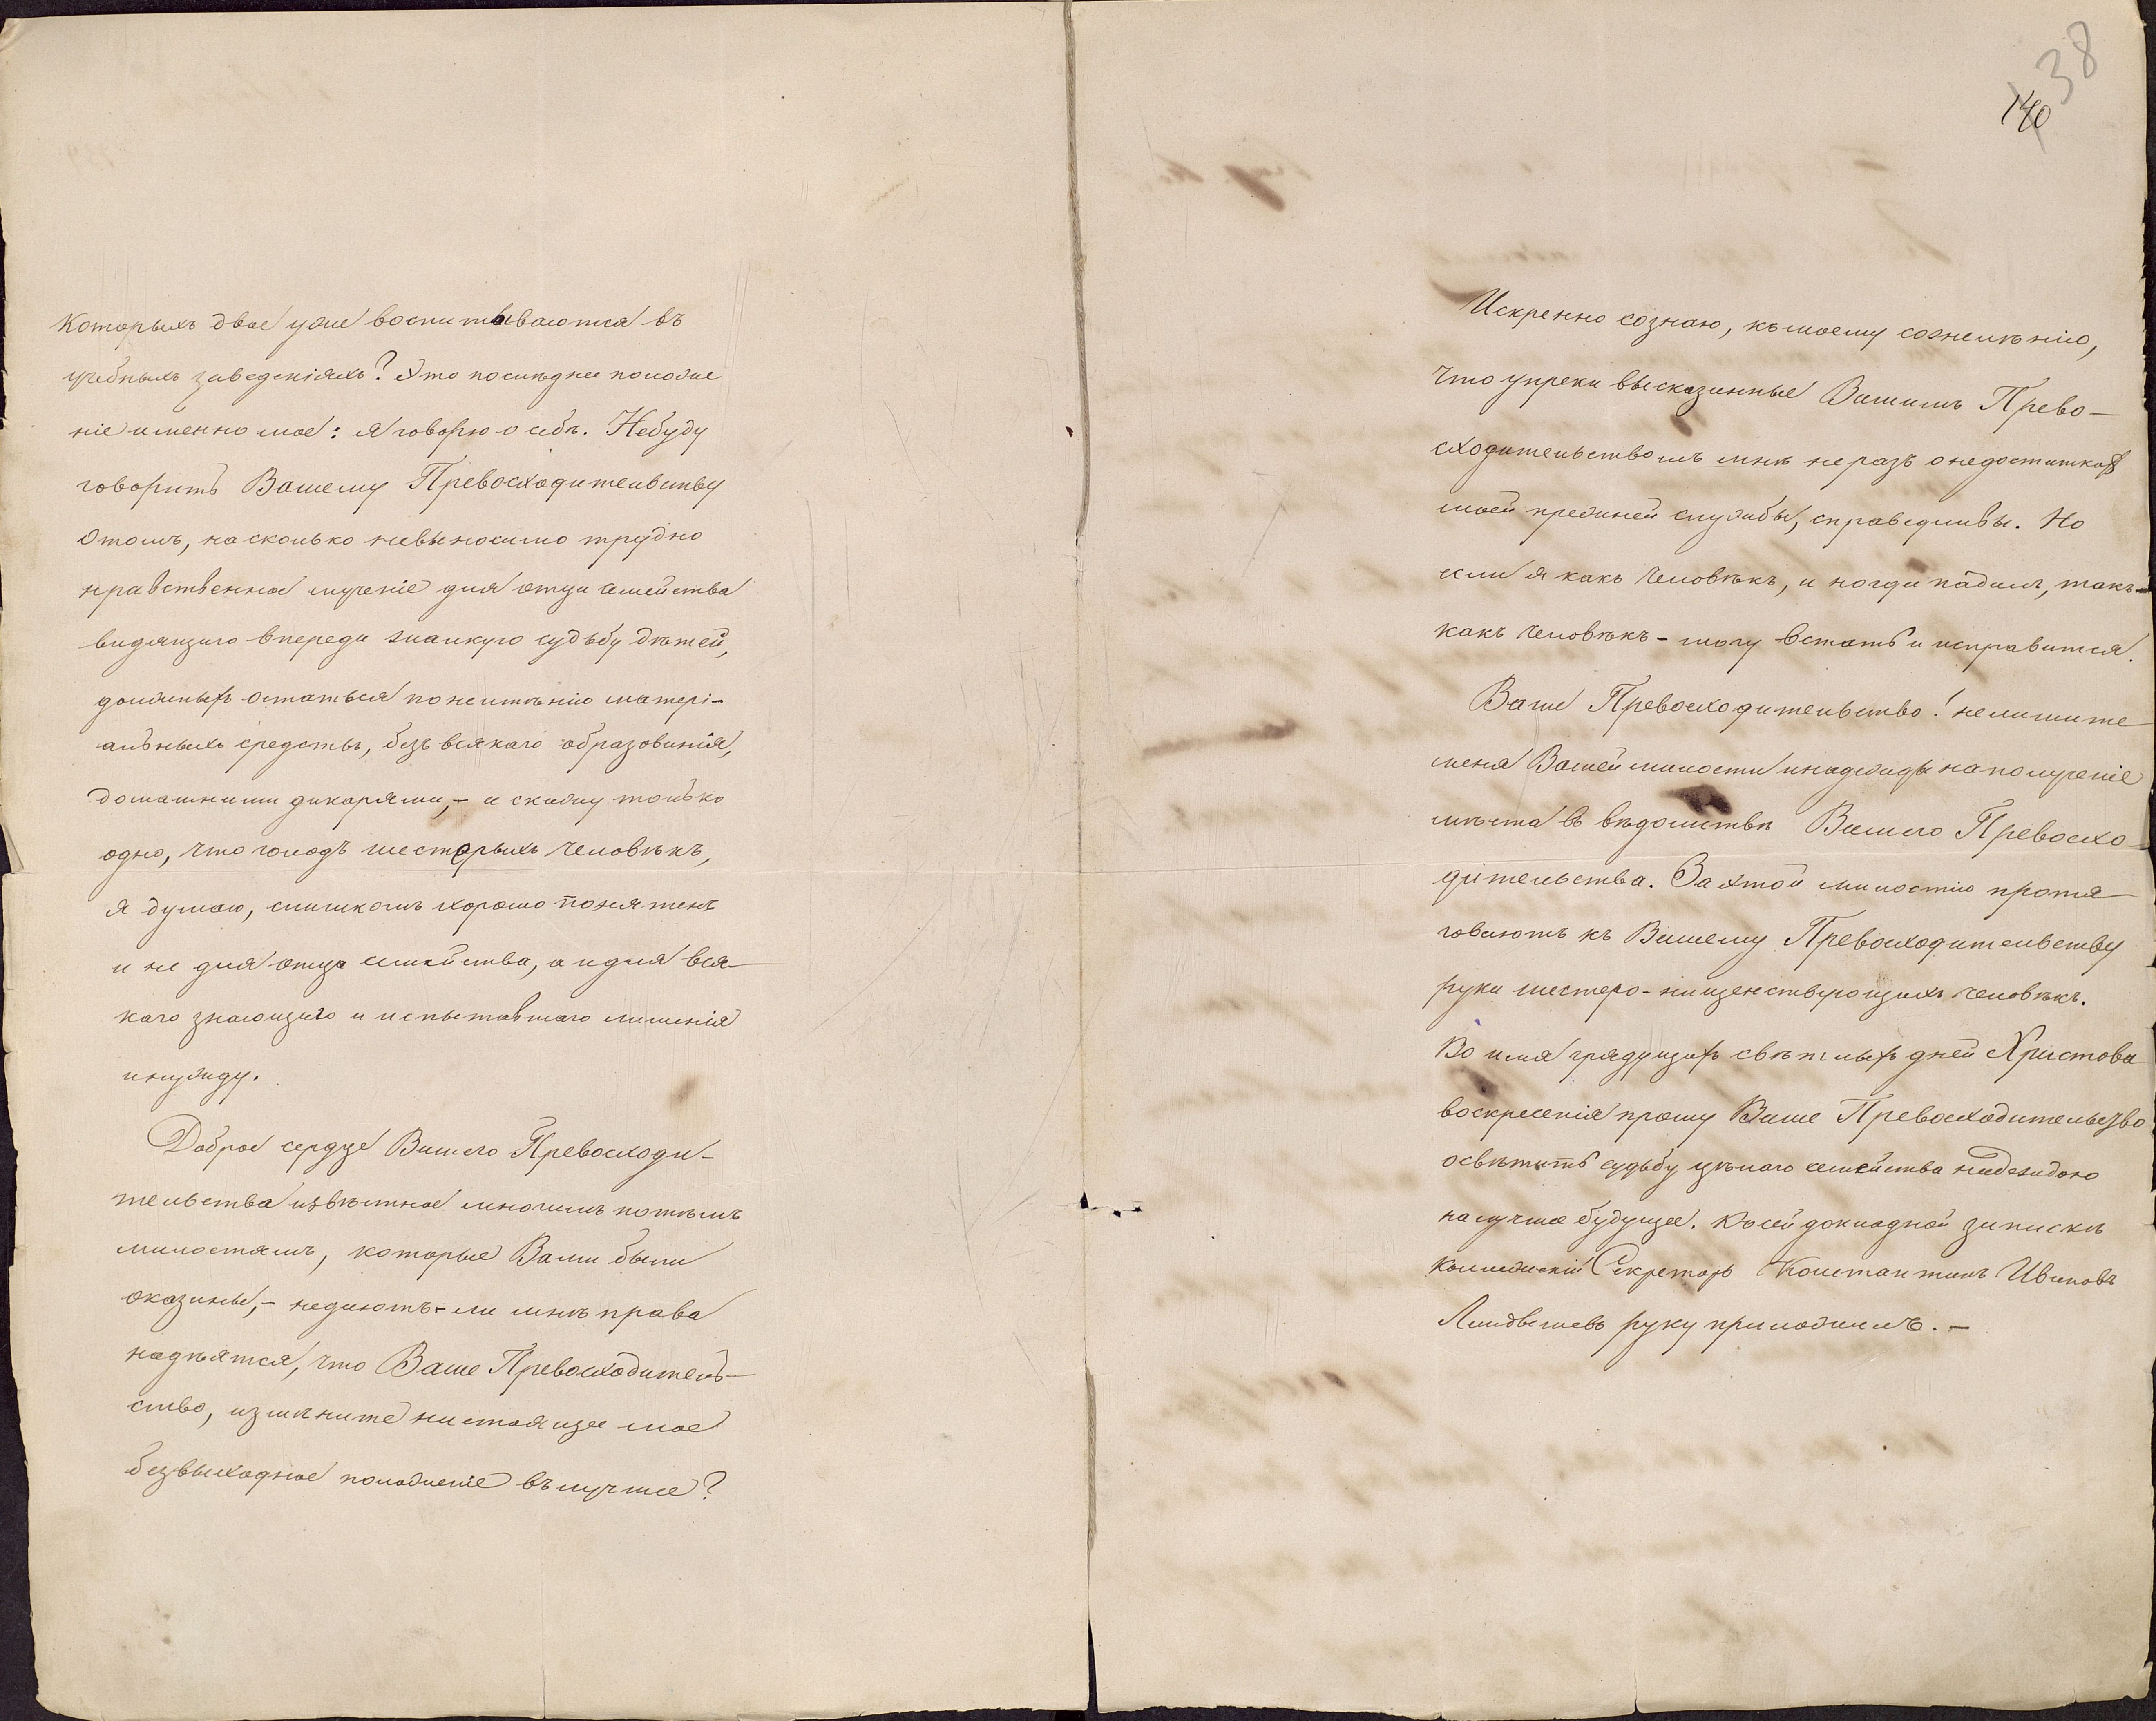 которыхъ двое уже воспитываются въ
учебныхъ заведеніяхъ? Это послѣднее положе
ніе именно мое: я говорю о себѣ. Небуду
говорить Вашему Превосходительству
отомъ, насколько невыносимо трудно
нравственное мученіе для отца семейства
видящаго впереди жалкую судьбу дѣтей,
должныхъ остаться понеимѣнію матері-
альныхъ средствъ, безъ всякаго образованія,
домашними дикарями,- а скажу только
одно, что голодъ шестерыхъ человѣкъ,
я думаю, слишкомъ хорошо понятенъ
и не для отца семейства, а идля вся-
каго знающаго и испытавшаго лишенія
инужду.
Доброе сердце Вашего Превосходи-
тельства извѣстное многимъ потѣмъ
милостямъ, которые Вами были
оказаны,- недаютъ-ли мнѣ права
надѣятся, что Ваше Превосходитель-
ство, измѣните настоящее мое
безвыходное положеніе вълучшее?
38
140
Искренно сознаю, къмоему сожелѣнію,
что упреки высказанные Вашимъ Прево-
сходительствомъ мнѣ неразъ онедостаткахъ
моей прежней службы, справедливы. Но
если я какъ человѣкъ, и ногда падалъ, такъ-
какъ человѣкъ - могу встать и исправится.
Ваше Превосходительство! нелишите
меня Вашей милости инадежды наполученіе
мѣста въ вѣдомствѣ Вашего Превосхо-
дительства. За этой милостію протя-
говаютъ къ Вашему Превосходительству
руки шестеро-нищенствующихъ человѣкъ.
Во имя грядущихъ свѣтлыхъ дней Христова
воскресенія прошу Ваше Превосходительство
освѣтить судьбу цѣлаго семейства надеждою
налучшее будущее. Ксей докладной запискѣ
Коллежскій Секретарь Констан тинъ Ивановъ
руку приложилъ. -